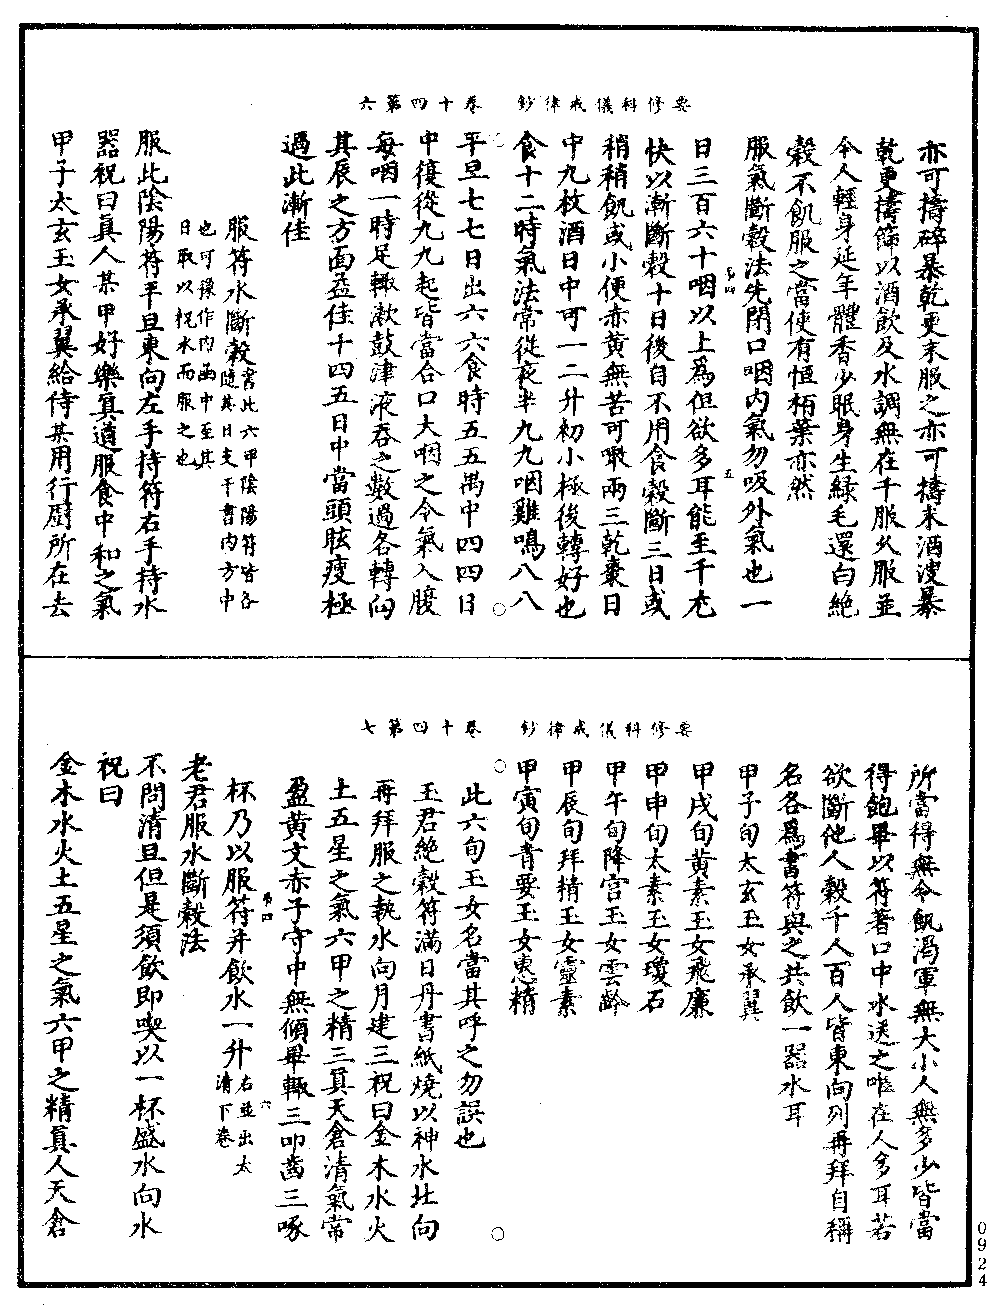 要修科儀戒律鈔　卷十四第六
亦可擣碎暴乾更末服之亦可擣末酒溲暴
乾更擣篩以酒飲及水調無在千服乆服並
令人輕身延年體香少眠身生緑毛還白絶
穀不飢服之當使有恒栢葉亦然
服氣斷穀法先閉口咽内氣勿吸外氣也一
日三百六十咽以上爲但欲多耳能至千尤
快以漸斷穀十日後自不用食穀斷三日或
稍稍飢或小便赤黄無苦可噉兩三乾棗日
中九枚酒日中可一二升初小極後轉好也
食十二時氣法常從夜半九九咽雞鳴八八
平旦七七日出六六食時五五禺中四四日
中復從九九起皆當合口大咽之令氣入腹
每咽一時足輙漱鼓津液吞之數過各轉向
其辰之方面益佳十四五日中當頭眩瘦極
過此漸佳
服符水斷穀書此六甲陰陽符皆各隨其日支干書内方中也可穄作内函中至其日取以投水而服之也
服此陰陽符平旦東向左手持符右手持水
器祝曰真人某甲好樂真道服食中和之氣
甲子太玄玉女承翼給侍某用行厨所在去
要修科儀戒律鈔　卷十四第七
所當得無令飢渴軍無大小人無多少皆當
得飽畢以符著口中水送之唯在人多耳若
欲斷他人穀千人百人皆東向列再拜自稱
名各爲書符與之共飲一器水耳
甲子旬太玄玉女承翼
甲戌旬黄素玉女飛廉
甲申旬太素玉女瓊石
甲午旬降宫玉女雲齡
甲辰旬拜精玉女靈素
甲寅旬青要玉女惠精
此六旬玉女名當其呼之勿誤也
玉君絶穀符滿日丹書紙燒以神水北向
再拜服之執水向月建三祝曰金木水火
土五星之氣六甲之精三真天倉清氣常
盈黄文赤子守中無傾畢輙三叩齒三啄
杯乃以服符并飲水一升右並出太清下卷
老君服水斷穀法
不問清旦但是須飲即喫以一杯盛水向水
祝曰
金木水火土五星之氣六甲之精真人天倉
0924